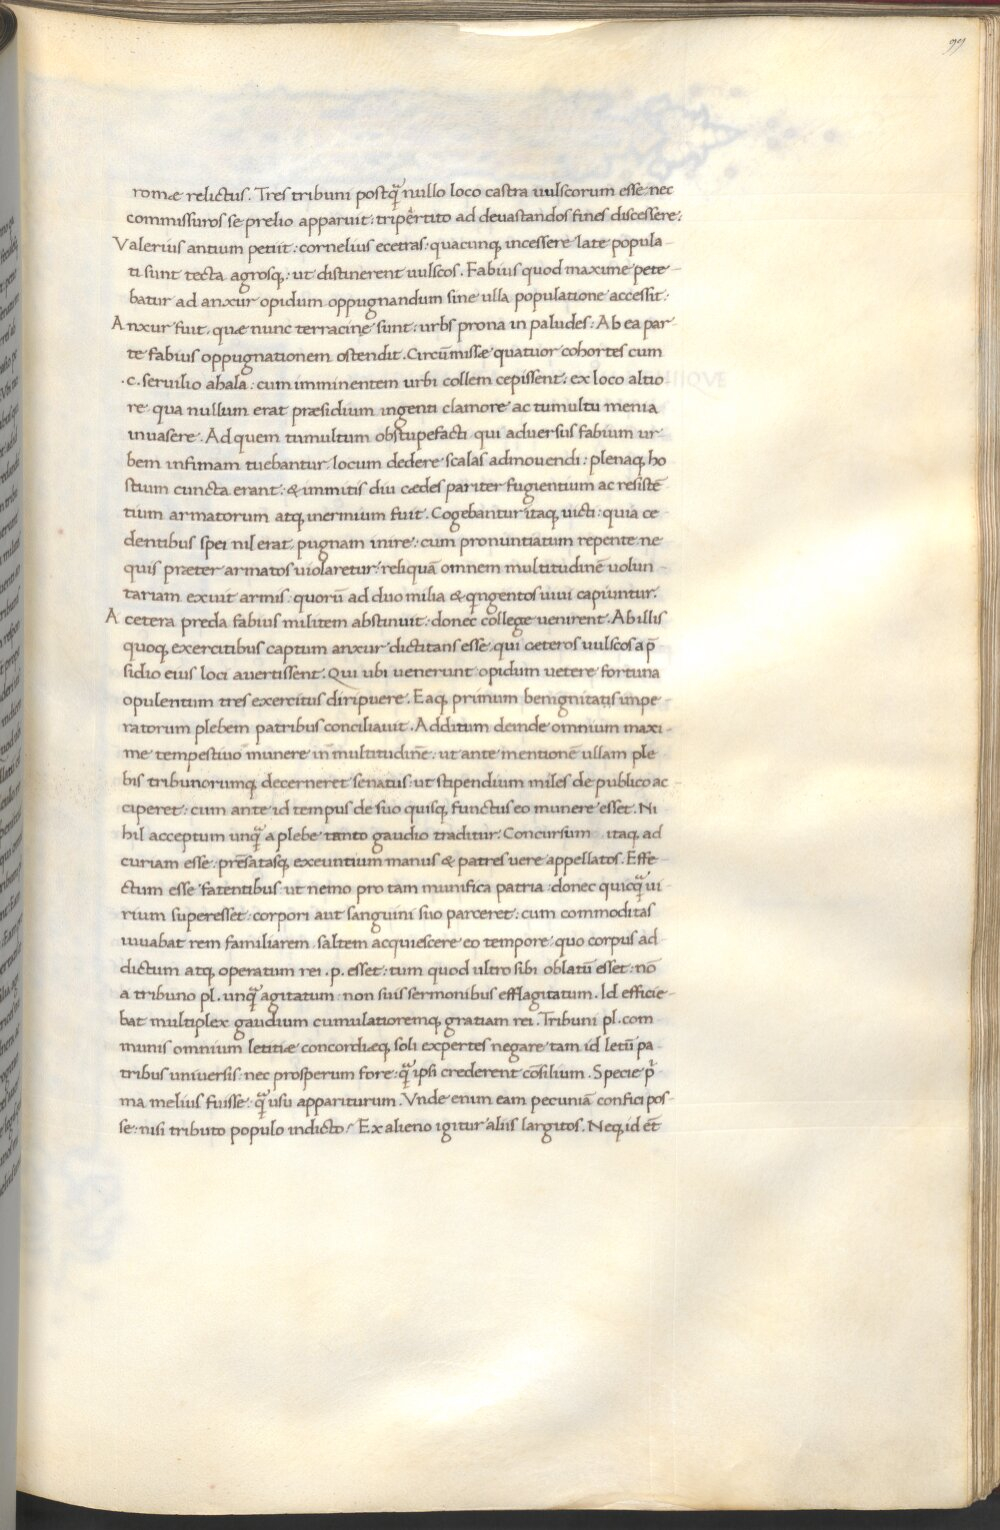 99
romæ relictus. Tres tribuni postq̃ nullo loco castra uulscorum esse: nec
commissuros se prelio apparuit: trip̱ertito ad deuastandos fines discessere:
Valerius antium petiit: cornelius ecetras: quacunq; incessere late popula-
ti sunt tecta agrosq;: ut distinerent uulscos. Fabius quod maxime pete-
batur ad anxur opidum oppugnandum sine ulla populatione accessit:
Anxur fuit, quæ nunc terracinę sunt: urbs prona in paludes: Ab ea par-
te fabius oppugnationem ostendit. Circūmissæ quatuor cohortes cum
.c. seruilio ahala: cum imminentem urbi collem cepissent: ex loco altio
re qua nullum erat præsidium ingenti clamore ac tumultu menia
inuasere. Ad quem tumultum obstupefacti qui aduersus fabium ur-
bem infimam tuebantur locum dedere scalas admouendi: plenaq; ho
stium cuncta erant: & immitis diu cædes pariter fugientium ac resistē
tium armatorum atq; inermium fuit. Cogebantur itaq; uicti: quia ce
dentibus spei nil erat pugnam inire: cum pronuntiatum repente ne
quis præter armatos uiolaretur: reliquā omnem multitudinē uolun-
tariam exuit armis: quorū ad duo milia & q̃ngentos uiui capiuntur.
A cetera preda fabius militem abstinuit: donec collegę uenirent. Ab illis
quoq; exercitibus captum anxur dictitans esse: qui ceteros uulscos a p̄
sidio eius loci auertissent. Qui ubi uenerunt opidum uetere fortuna
opulentum tres exercitus diripuere. Eaq; primum benignitatis impe-
ratorum plebem patribus conciliauit. Additum deinde omnium maxi-
me tempestiuo munere in multitudinē: ut ante mentionē ullam ple
bis tribunorumq; decerneret senatus: ut stipendium miles de publico ac-
ciperet: cum ante id tempus de suo quisq; functus eo munere esset. Ni
hil acceptum unq̃ a plebe tanto gaudio traditur. Concursum itaq; ad
curiam esse: prēsatasq; exeuntium manus & patres uere appellatos. Effe-
ctum esse fatentibus ut nemo pro tam munifica patria: donec quicq̃ ui-
rium superesset: corpori aut sanguini suo parceret: cum commoditas
iuuabat rem familiarem saltem acquiescere eo tempore: quo corpus ad-
dictum atq; operatum rei .p. esset: tum quod ultro sibi oblatū esset: nō
a tribuno pl. unq̃ agitatum: non suis sermonibus efflagitatum. Id efficie-
bat multiplex gaudium cumulatioremq; gratiam rei. Tribuni pl. com-
munis omnium letitiæ concordięq; soli expertes negare tam id letū pa-
tribus uniuersis: nec prosperum fore: q̃ ipsi crederent cōsilium. Specie p̊
ma melius fuisse: q̃ usu appariturum. Vnde enim eam pecuniā confici pos-
se: nisi tributo populo indicto? Ex alieno igitur aliis largitos. Neq; id ēt